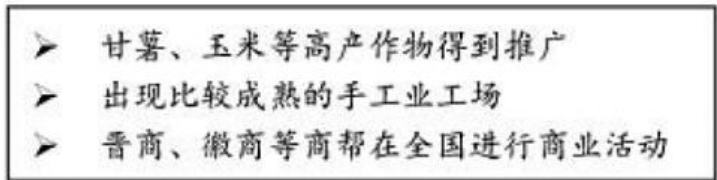 ➢ 甘薯、玉米等高产作物得到推广
➢ 出现比较成熟的手工业工场
➢ 晋商、徽商等商帮在全国进行商业活动